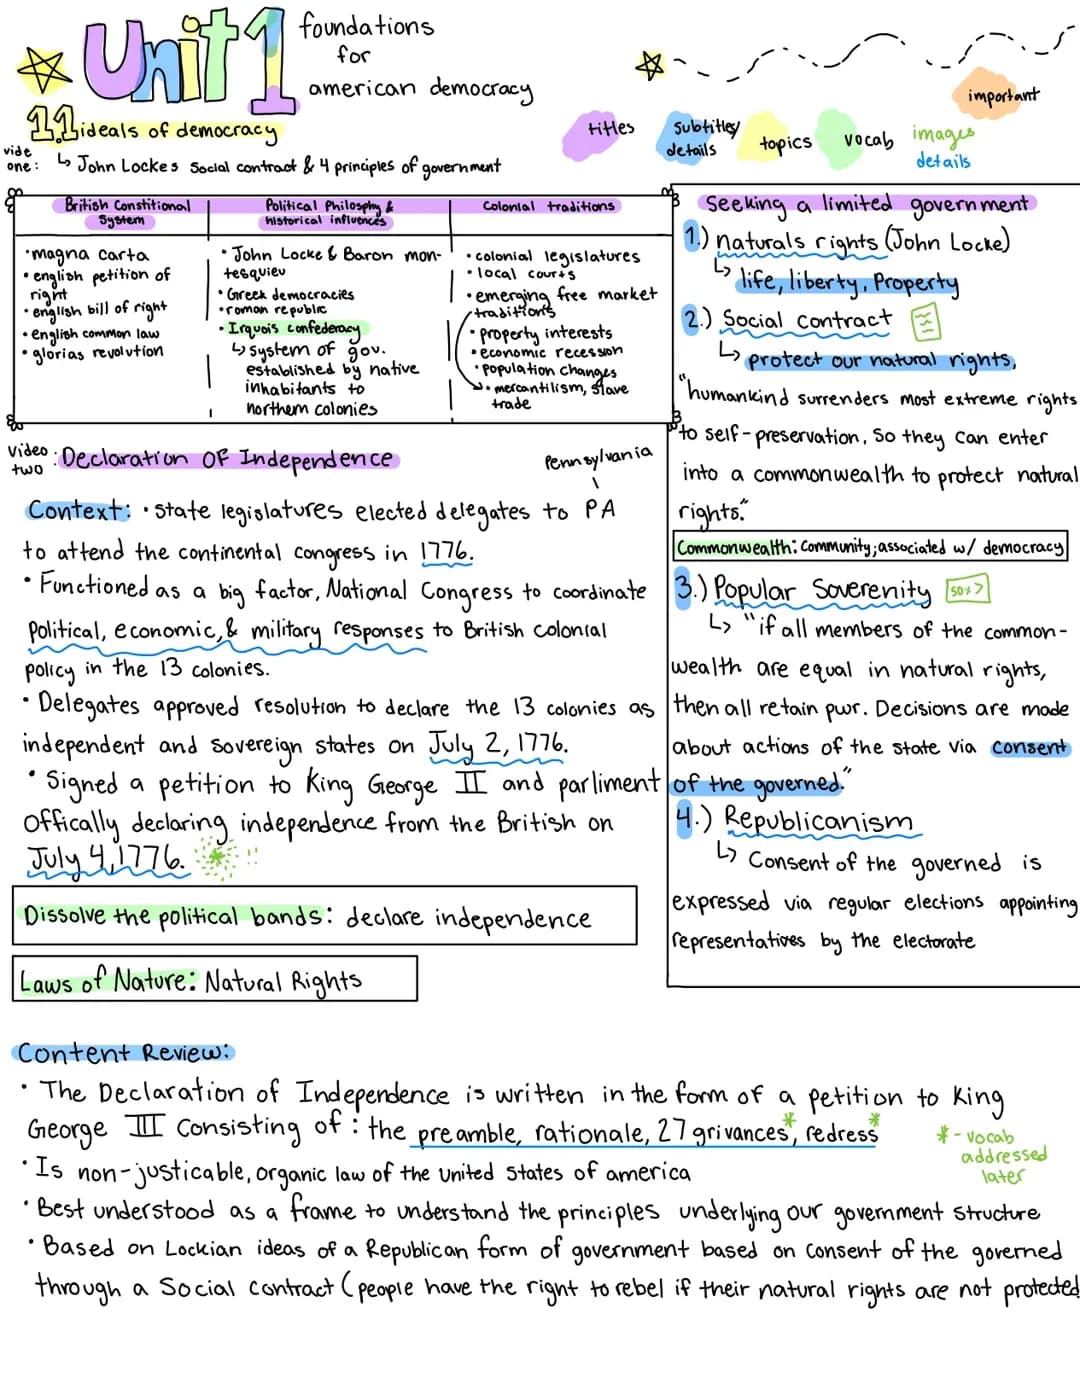 Unit 1
foundations
for
american democracy
1.1 ideals of democracy
vide
one:
↳ John Lockes Social contract & 4 principles of government
titles
Subtitles/
details
topics
vocab
important
images
details
British Constitional
System
Political Philosphy &
historical influences
Colonial traditions
• magna carta
• english petition of
right
• english bill of right
• english common law
• glorias revolution
• John Locke & Baron mon-
tesquieu
• Greek democracies
• roman republic
• Irquois confederacy
↳ system of gov.
established by native
inhabitants to
northern colonies
• colonial legislatures
• local courts
• emerging free market
traditions
• property interests
• economic recession
• population changes
• mercantilism, slave
trade
Seeking a limited government
1.) naturals rights (John Locke)
↳ life, liberty, Property
2.) Social Contract
↳ protect our natural rights,
"humankind surrenders most extreme rights
to self-preservation, so they can enter
into a commonwealth to protect natural
rights."
Commonwealth: Community; associated w/ democracy
3.) Popular Soverenity
50%>
↳ "if all members of the common-
wealth are equal in natural rights,
then all retain pwr. Decisions are made
about actions of the state via consent
of the governed."
4.) Republicanism
↳ Consent of the governed is
expressed via regular elections appointing
representatives by the electorate
Video
two
: Declaration OF Independence
Pennsylvania
Context: • state legislatures elected delegates to PA
to attend the continental congress in 1776.
• Functioned as a big factor, National Congress to coordinate
Political, economic, & military responses to British Colonial
policy in the 13 colonies.
• Delegates approved resolution to declare the 13 colonies as
independent and sovereign states on July 2, 1776.
• Signed a petition to King George II and parliment
offically declaring independence from the British on
July 4, 1776.
Dissolve the political bands: declare independence
Laws of Nature: Natural Rights
Content Review:
• The Declaration of Independence is written in the form of a petition to King
George III Consisting of : the preamble, rationale, 27 grivances*, redress*
* - vocab
addressed
later
• Is non-justicable, organic law of the united states of america
• Best understood as a frame to understand the principles underlying our government structure
• Based on Lockian ideas of a Republican form of government based on consent of the governed
through a Social contract (people have the right to rebel if their natural rights are not protected